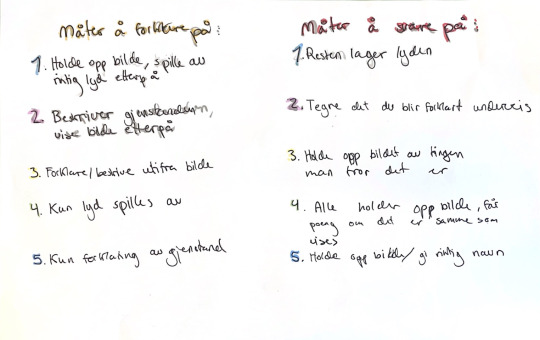 Måter å forklare på:
1. Holde opp bilde, spille av
riktig lyd etterpå
2. Beskriver gjenstanden,
vise bilde etterpå
3. Forklare/beskrive utifra bilde
4. Kun lyd spilles av
5. Kun forklaring av gjenstand
Måter å svare på:
1. Resten lager lyden
2. Tegne det du blir forklart underveis
3. Holde opp bildet av tingen
man tror det er
4. Alle holder opp bilde, får
poeng om det er samme som
vises
5. Holde opp bilde/ gi riktig navn